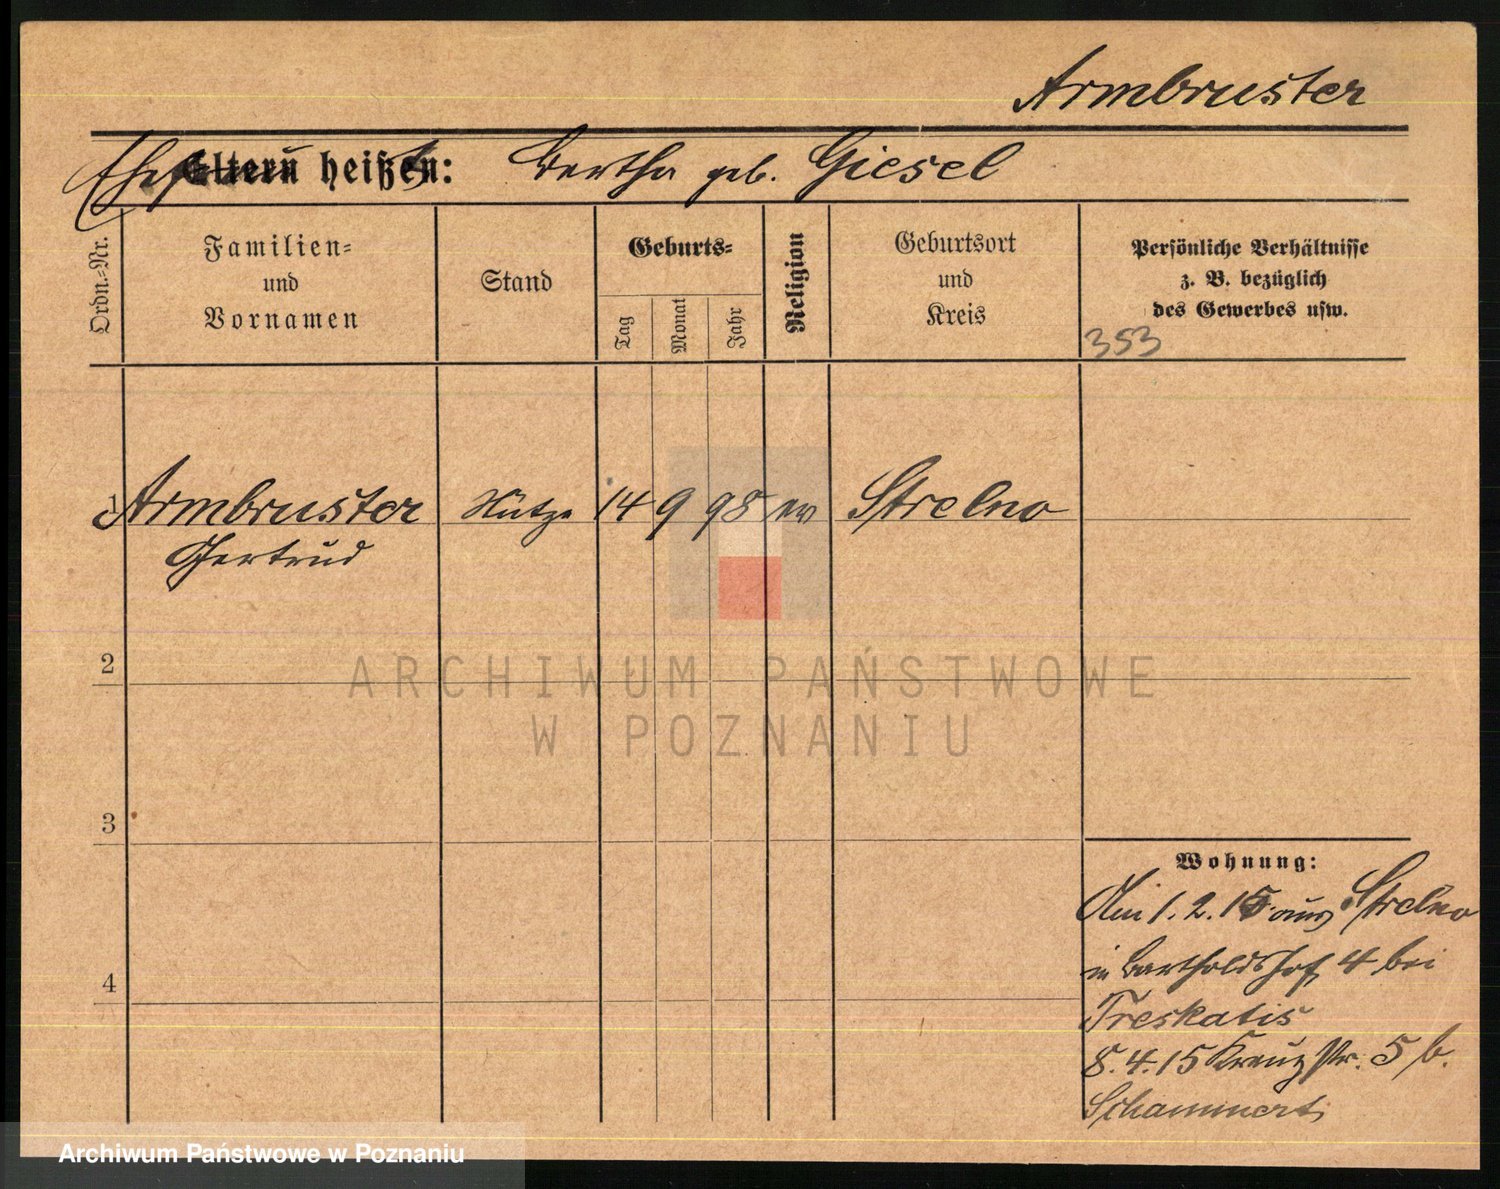 Armbruster
Eltern heißen: Bertha geb. Giesel
Ordn.-Nr.
Familien-
und
Vornamen
Stand
Geburts-
Tag
Monat
Jahr
Religion
Geburtsort
und
Kreis
Persönliche Verhältnisse
z. B. bezüglich
des Gewerbes usw.
353
1 Armbruster Stütze 14 9 98 ev Strelno
Gertrud
2
3
4
Wohnung:
Am 1. 2. 15 aus Strelno
in Bartholdshof 4 bei
Treskatis
8. 4. 15 Kreuzstr. 5 b.
Schammert
ARCHIWUM PAŃSTWOWE
W POZNANIU
Archiwum Państwowe w Poznaniu